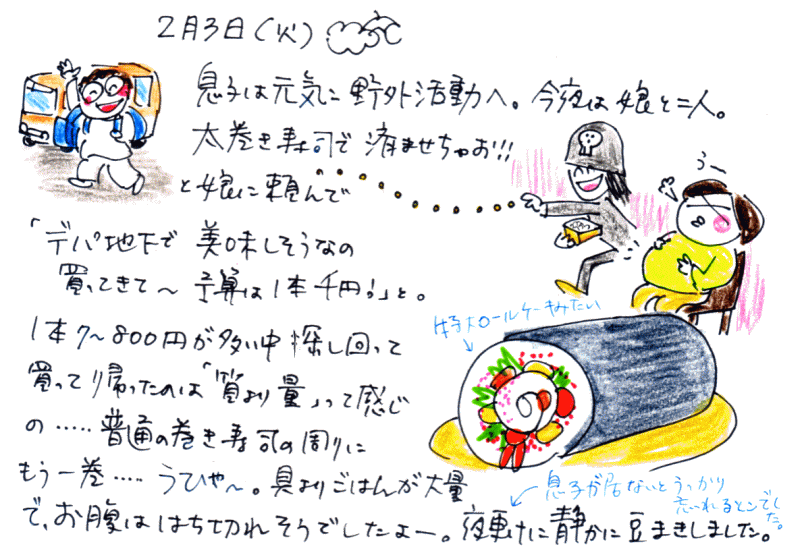 2月3日(火)
息子は元気に野外活動へ。今夜は娘と二人。
太巻き寿司で済ませちゃお!!!
と娘に頼んで
うー
「デパ地下で 美味しそうなの
買ってきて〜 予算は1本千円!」と。
特大ロールケーキみたい
1本7〜800円が多い中探し回って
買って帰ったのは「質より量」って感じ
の……普通の巻き寿司の周りに
もう一巻……うひゃ〜。具よりごはんが大量
息子が居ないとうっかり
忘れるとこでした。
で、お腹ははち切れそうでしたよー。夜更けに静かに豆まきしました。